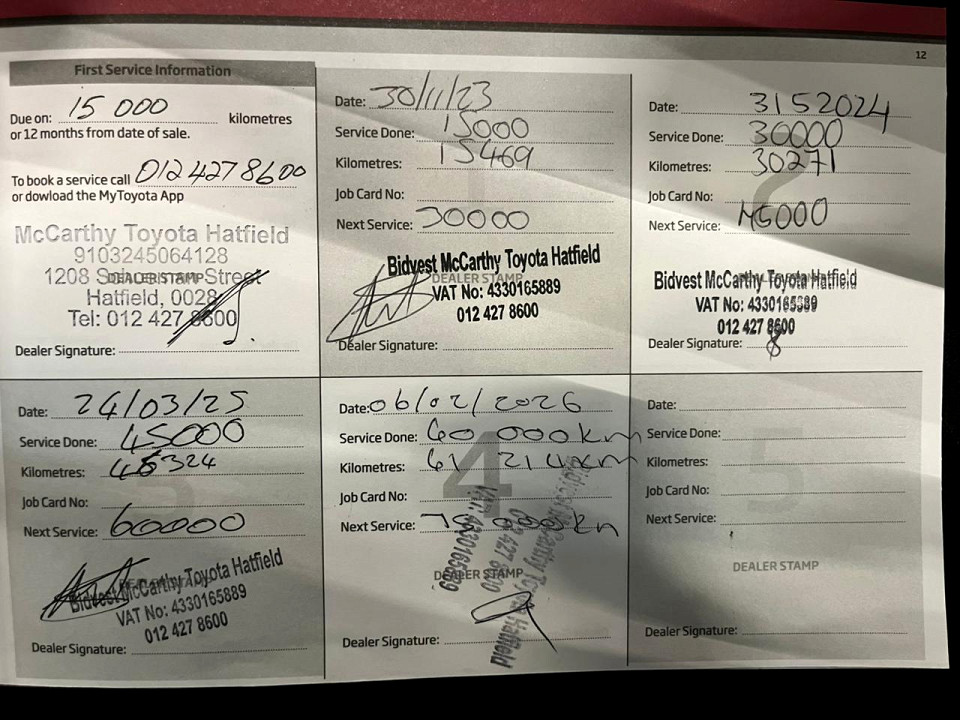 12
First Service Information
Due on: 15 000 kilometres
or 12 months from date of sale.
To book a service call 012 427 8600
or dowload the MyToyota App
McCarthy Toyota Hatfield
9103245064128
1208 Street
DEALER STAMP
Hatfield, 0028
Tel: 012 427 8600
Dealer Signature:
Date: 30/11/23
Service Done: 15000
Kilometres: 15469
Job Card No:
Next Service: 30000
Bidvest McCarthy Toyota Hatfield
DEALER STAMP
VAT No: 4330165889
012 427 8600
Dealer Signature:
Date: 3152024
Service Done: 30000
Kilometres: 30271
Job Card No:
Next Service: 45000
Bidvest McCarthy Toyota Hatfield
VAT No: 4330165889
012 427 8600
Dealer Signature:
Date: 24/03/25
Service Done: 45000
Kilometres: 324
Job Card No:
Next Service: 60000
Bidvest McCarthy Toyota Hatfield
VAT No: 4330165889
012 427 8600
Dealer Signature:
4
Date: 06/02/2026
Service Done: 60 000km
Kilometres: 61 214km
Job Card No:
Next Service: 75 000km
DEALER STAMP
Toyota Hatfield
4330165889
012 427 8600
Dealer Signature:
5
Date:
Service Done:
Kilometres:
Job Card No:
Next Service:
DEALER STAMP
Dealer Signature: